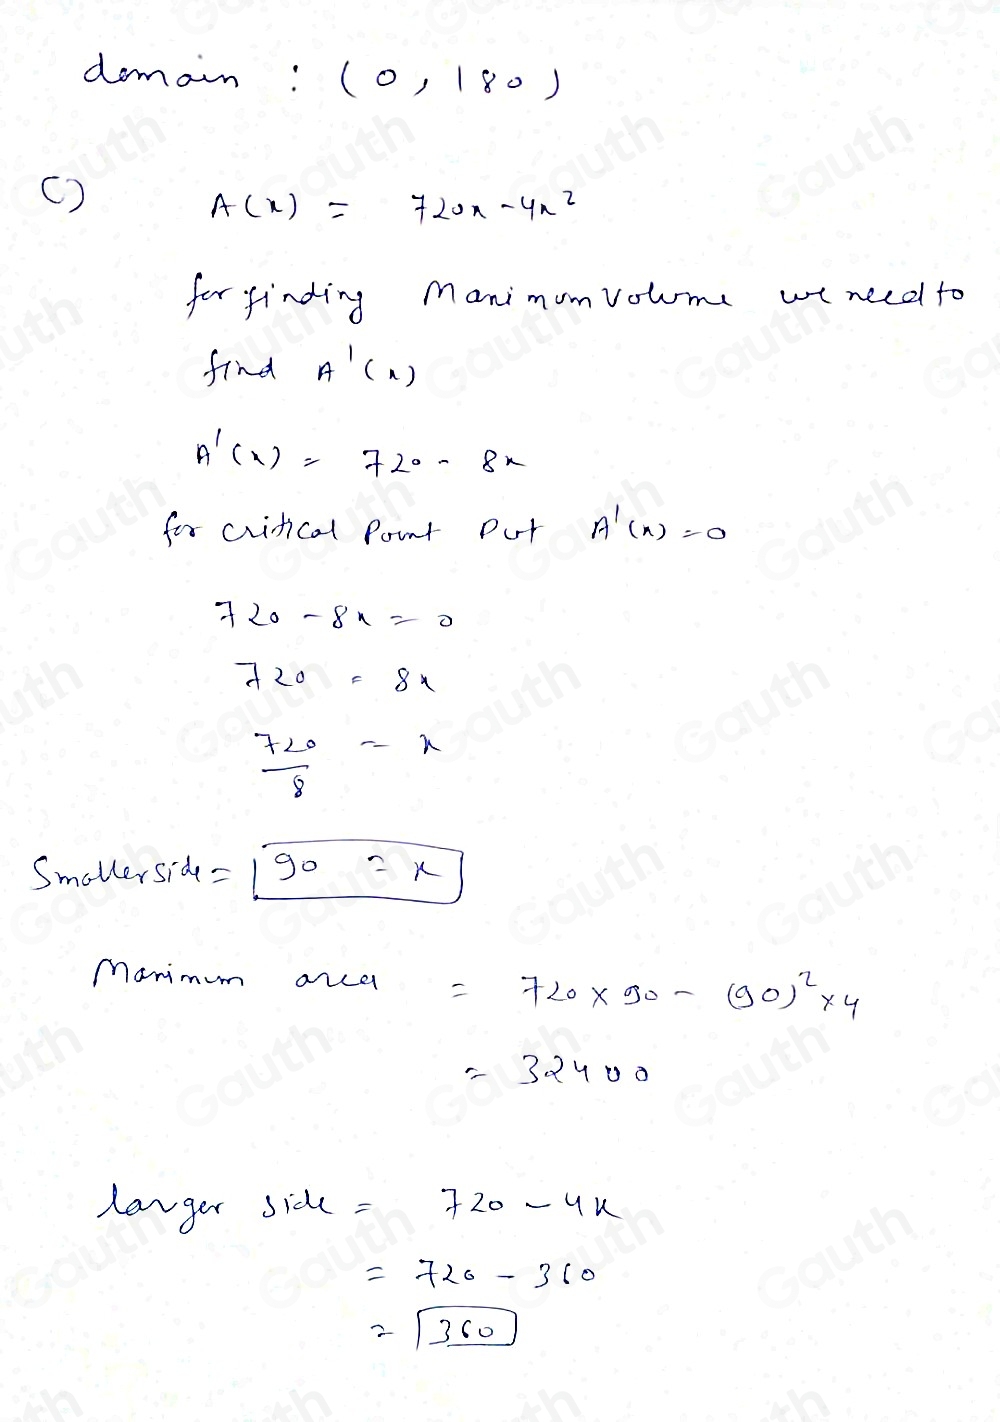 domain : (0, 180)
C) A(x) = 720x - 4x²
for finding Maximum Volume we need to
find A'(x)
A'(x) = 720 - 8x
for critical Point Put A'(x) = 0
720 - 8x = 0
720 = 8x
720/8 = x
Smaller side = 90 = x
Maximum area = 720 × 90 - (90)² × 4
= 32400
larger side = 720 - 4x
= 720 - 360
= 360